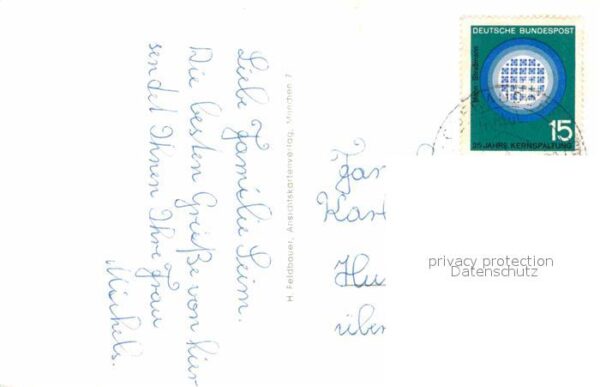 Liebe Familie Seim.
Die besten Grüße von hier
sendet Ihnen Ihre Frau
Michels.
H. Feldbauer, Ansichtskartenverlag, München 7
DEUTSCHE BUNDESPOST
15
25 JAHRE KERNSPALTUNG
Fam
Karl
Hu
über
privacy protection
Datenschutz